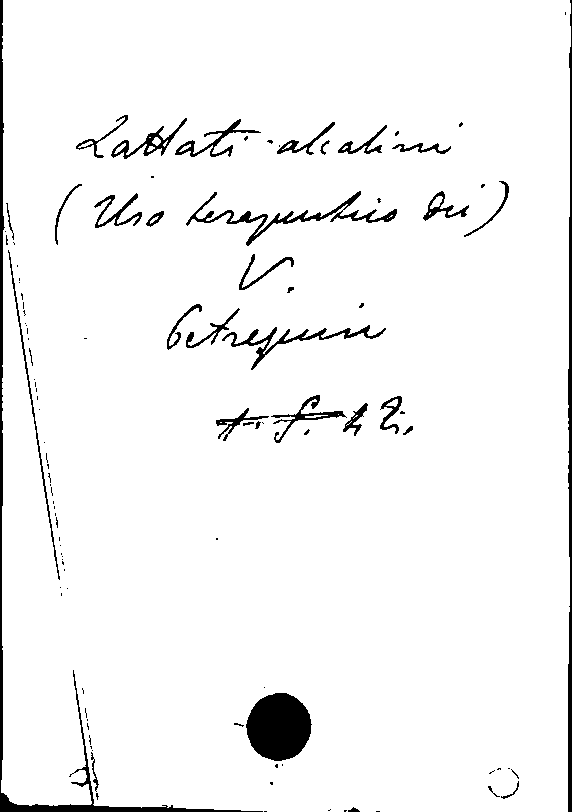 Lattati-alcalini
(Uso terapeutico dei)
V.
Petrequin